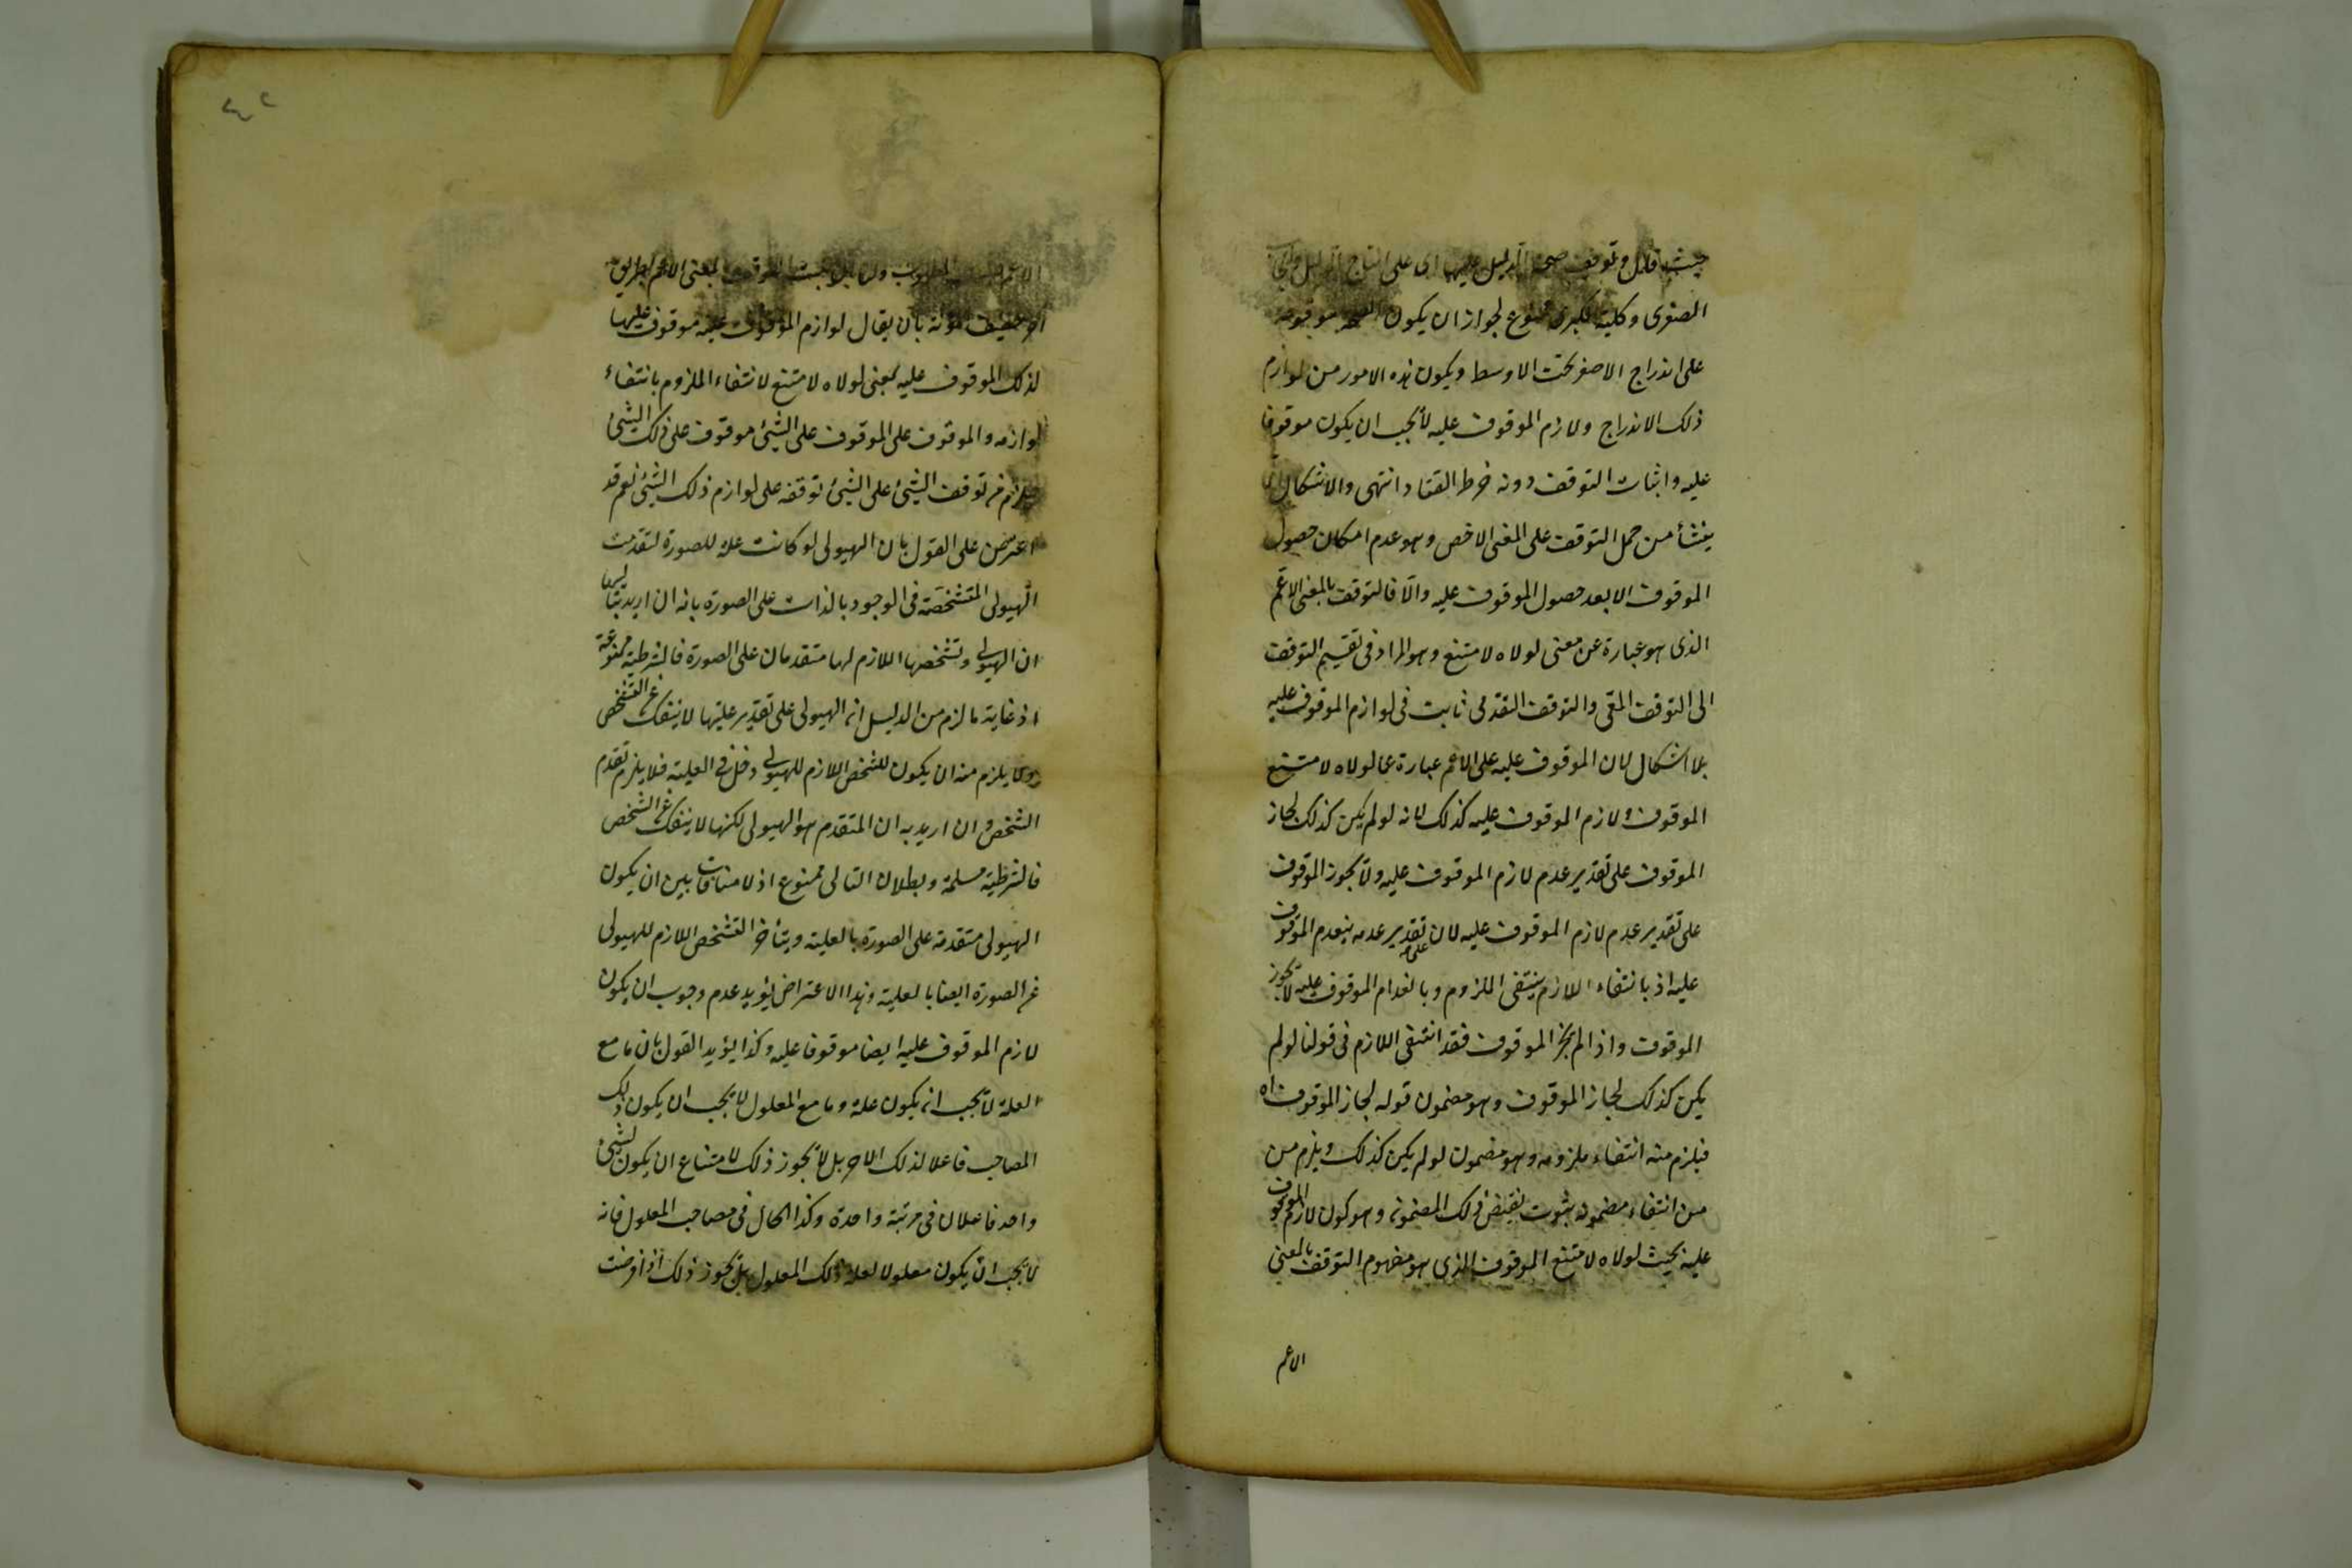 حيث قال وتوقف صحة الدليل عليها اى على انتاج الدليل وايجاب
الصغرى وكلية الكبرى ممنوع لجواز ان يكون الصحة موقوفة
على اندراج الاصغر تحت الاوسط ويكون هذه الامور من لوازم
ذلك الاندراج ولازم الموقوف عليه لا يجب ان يكون موقوفا
عليه واثبات التوقف دونه خرط القتاد انتهى والاشكال
ينشأ من حمل التوقف على المعنى الاخص وهو عدم امكان حصول
الموقوف الا بعد حصول الموقوف عليه والا فالتوقف بالمعنى الاعم
الذى هو عبارة عن معنى لولاه لامتنع وهو المراد فى تقسيم التوقف
الى التوقف المعى والتوقف التقدمى ثابت فى لوازم الموقوف عليه
بلا اشكال لان الموقوف عليه على الاعم عبارة عما لولاه لامتنع
الموقوف ولازم الموقوف عليه كذلك لانه لو لم يكن كذلك لجاز
الموقوف على تقدير عدم لازم الموقوف عليه ولا يجوز الموقوف
على تقدير عدم لازم الموقوف عليه لان على تقدير عدمه ينعدم الموقوف
عليه اذ بانتفاء اللازم ينتفى الملزوم وبانعدام الموقوف عليه لا يجوز
الموقوف واذا لم يجز الموقوف فقد انتفى اللازم فى قولنا لو لم
يكن كذلك لجاز الموقوف وهو مضمون قوله لجاز الموقوف اه
فيلزم منه انتفاء ملزومه وهو مضمون لو لم يكن كذلك ويلزم من
من انتفاء مضمونه ثبوت نقيض ذلك المضمون وهو كون لازم الموقوف
عليه بحيث لولاه لامتنع الموقوف الذى هو مفهوم التوقف بالمعنى
الاعم
الاعم المطلوب ولنا ان نثبت التوقف بالمعنى الاعم بطريق
اخر خفيف المؤنة بان يقال لوازم الموقوف عليه موقوف عليها
لذلك الموقوف عليه بمعنى لولاه لامتنع لانتفاء الملزوم بانتفاء
لوازمه والموقوف على الموقوف على الشىء موقوف على ذلك الشىء
فيلزم من توقف الشىء على الشىء توقفه على لوازم ذلك الشىء نعم قد
اعترض على القول بان الهيولى لو كانت علة للصورة لتقدمت
الهيولى المتشخصة فى الوجود بالذات على الصورة بانه ان اريد بتاليها
ان الهيولى وتشخصها اللازم لها متقدمان على الصورة فالشرطية ممنوعة
اذ غاية ما لزم من الدليل ان الهيولى على تقدير عليتها لا ينفك عن التشخص
ولا يلزم منه ان يكون للشخص اللازم للهيولى دخل فى العلية فلا يلزم تقدم
الشخص وان اريد به ان المتقدم هو الهيولى لكنها لا ينفك عن الشخص
فالشرطية مسلمة وبطلان التالى ممنوع اذ لا منافات بين ان يكون
الهيولى متقدمة على الصورة بالعلية ويتأخر التشخص اللازم للهيولى
عن الصورة ايضا بالعلية وهذا الاعتراض يؤيد عدم وجوب ان يكون
لازم الموقوف عليه ايضا موقوفا عليه وكذا يؤيد القول بان ما مع
العلة لا يجب ان يكون علة وما مع المعلول لا يجب ان يكون ذلك
المصاحب فاعلا لذلك الاخر بل لا يجوز ذلك لامتناع ان يكون لشىء
واحد فاعلان فى مرتبة واحدة وكذا الحال فى مصاحب المعلول فانه
لا يجب ان يكون معلولا لعلة ذلك المعلول بل لا يجوز ذلك اذا فرضت